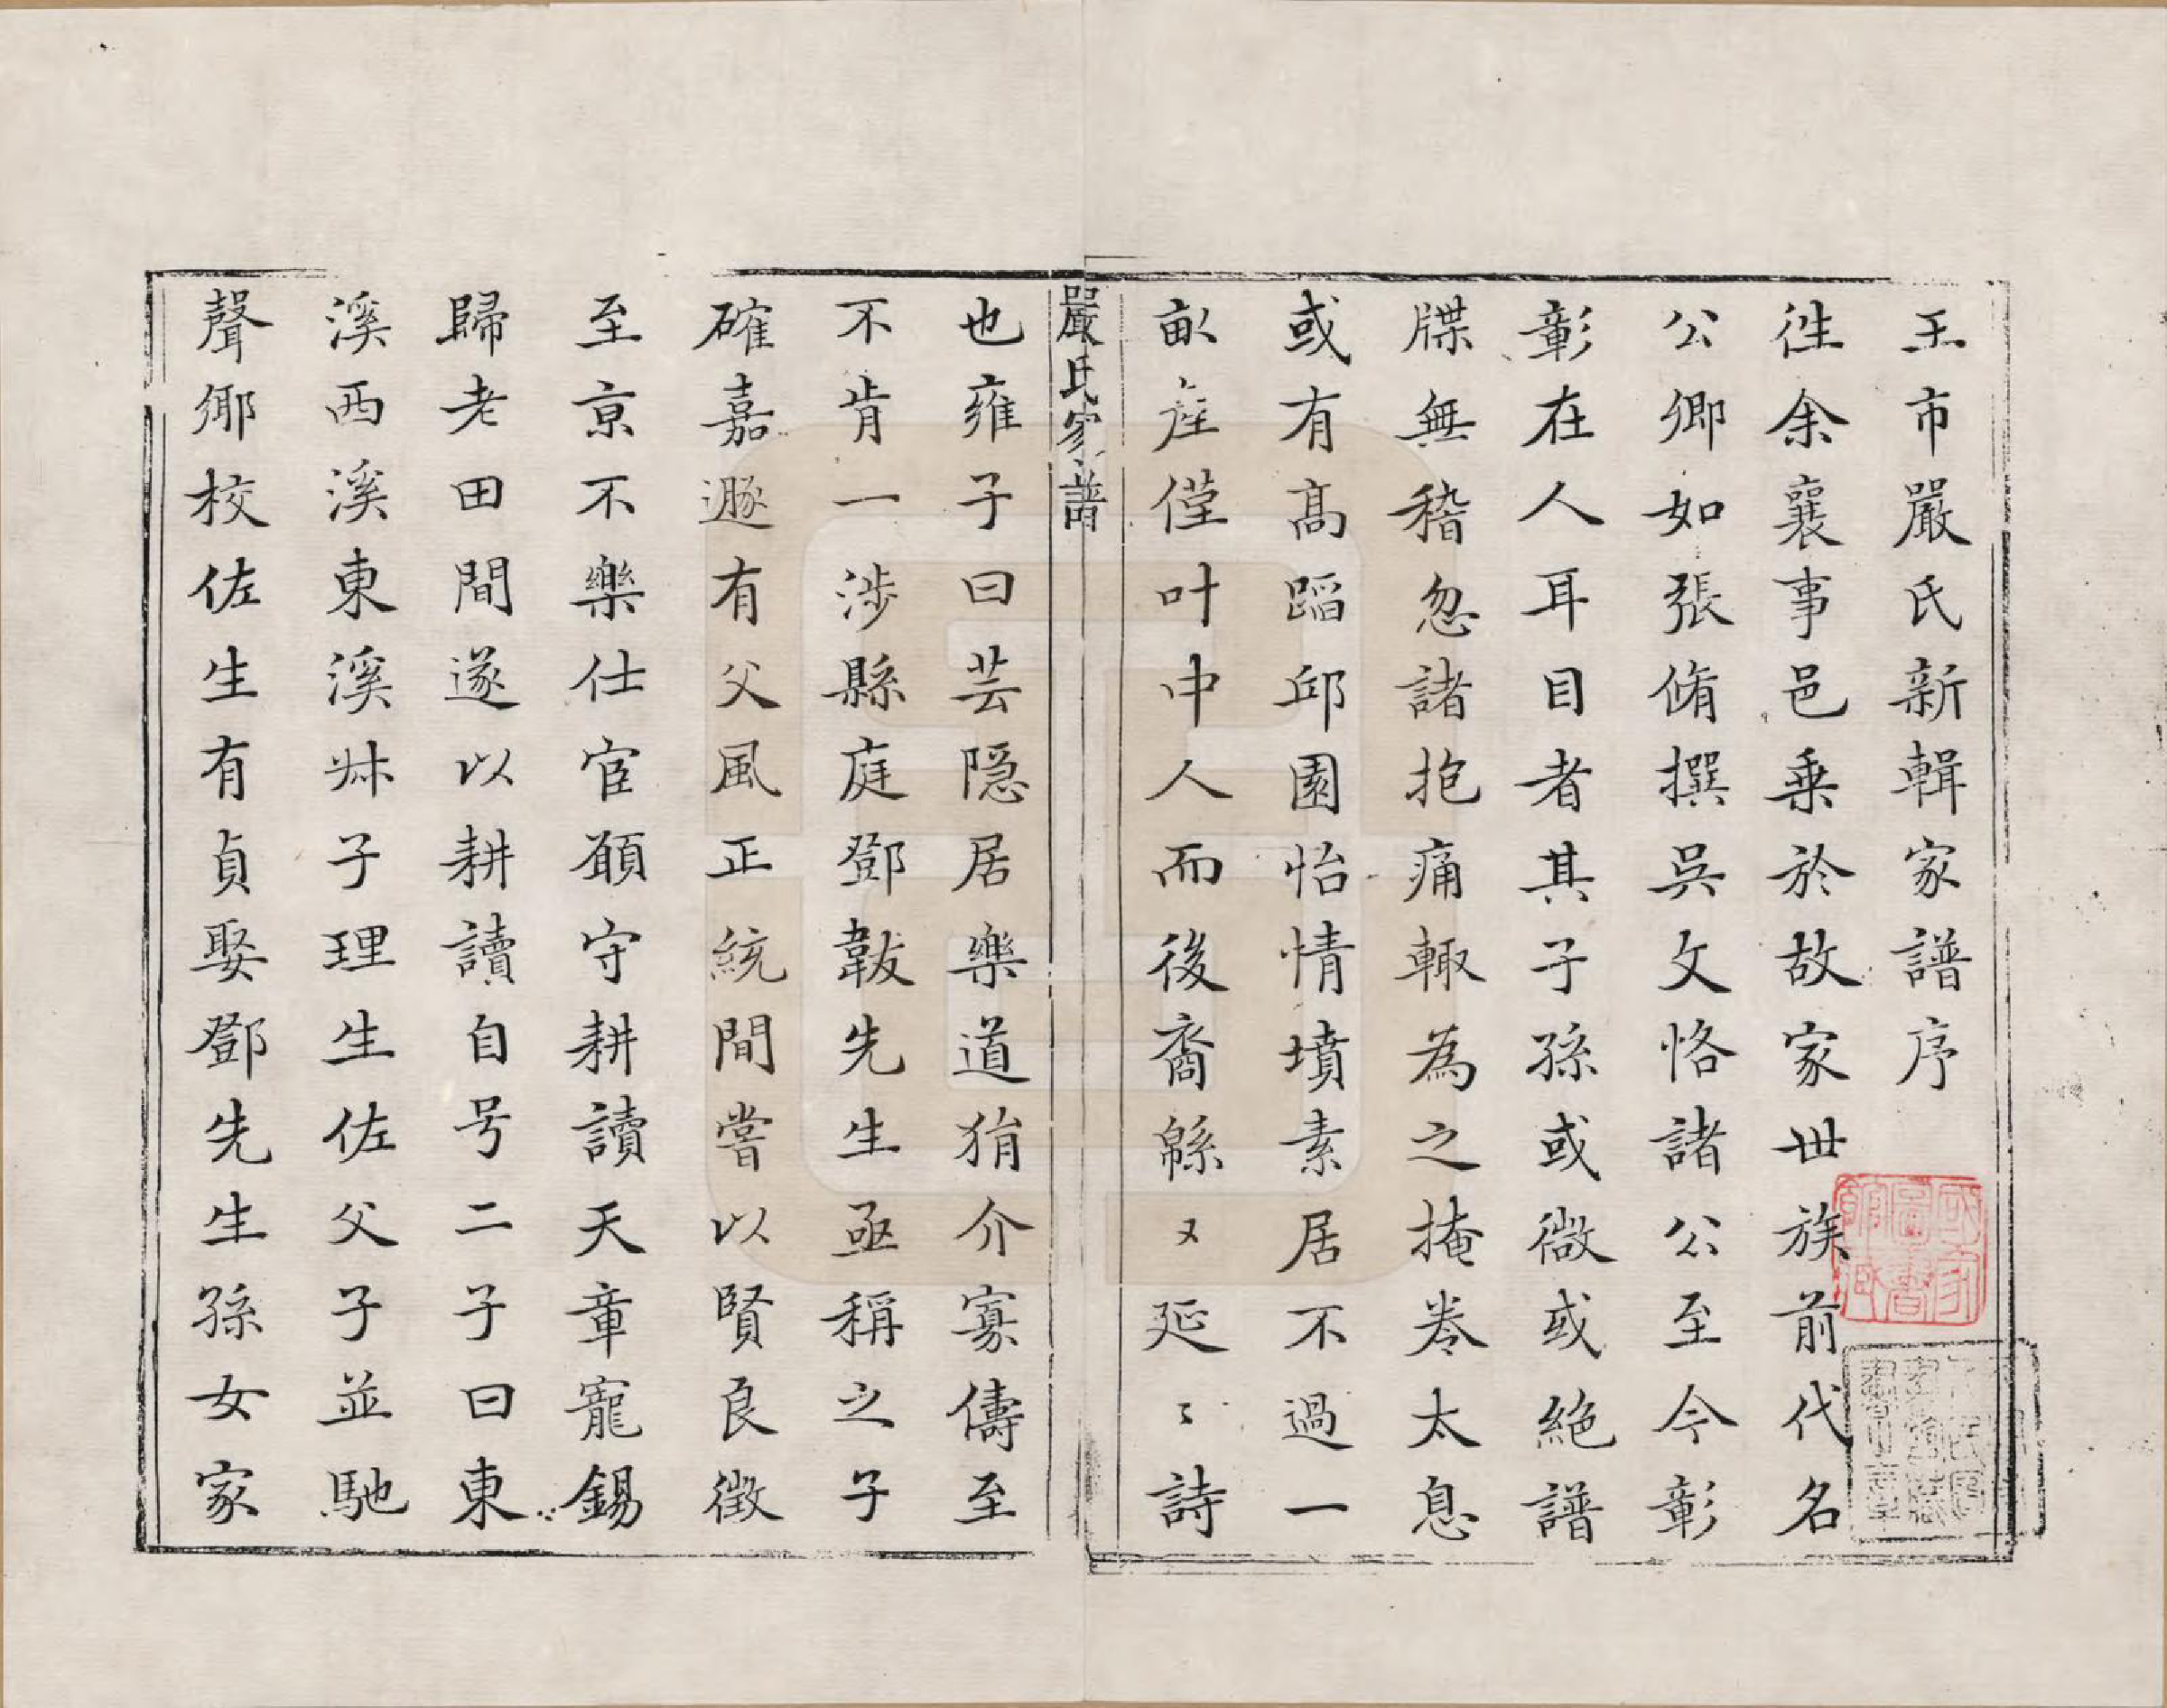 王市嚴氏新輯家譜序
徃余襄事邑乗於故家世族前代名
公卿如張脩撰吳文恪諸公至今彰
彰在人耳目者其子孫或微或絶譜
牒無稽忽諸抱痛輙為之掩卷太息
或有髙蹈邱園怡情墳素居不過一
畝産僅叶中人而後裔緜〻延〻詩
嚴氏家譜
也雍子曰芸隠居樂道狷介寡儔至
不肯一涉縣庭鄧韍先生亟稱之子
確嘉遯有父風正統間嘗以賢良徴
至京不樂仕宦願守耕讀天章寵錫
歸老田間遂以耕讀自号二子曰東
溪西溪東溪𠦑子理生佐父子並馳
聲鄉校佐生有貞娶鄧先生孫女家
國家圖書館藏